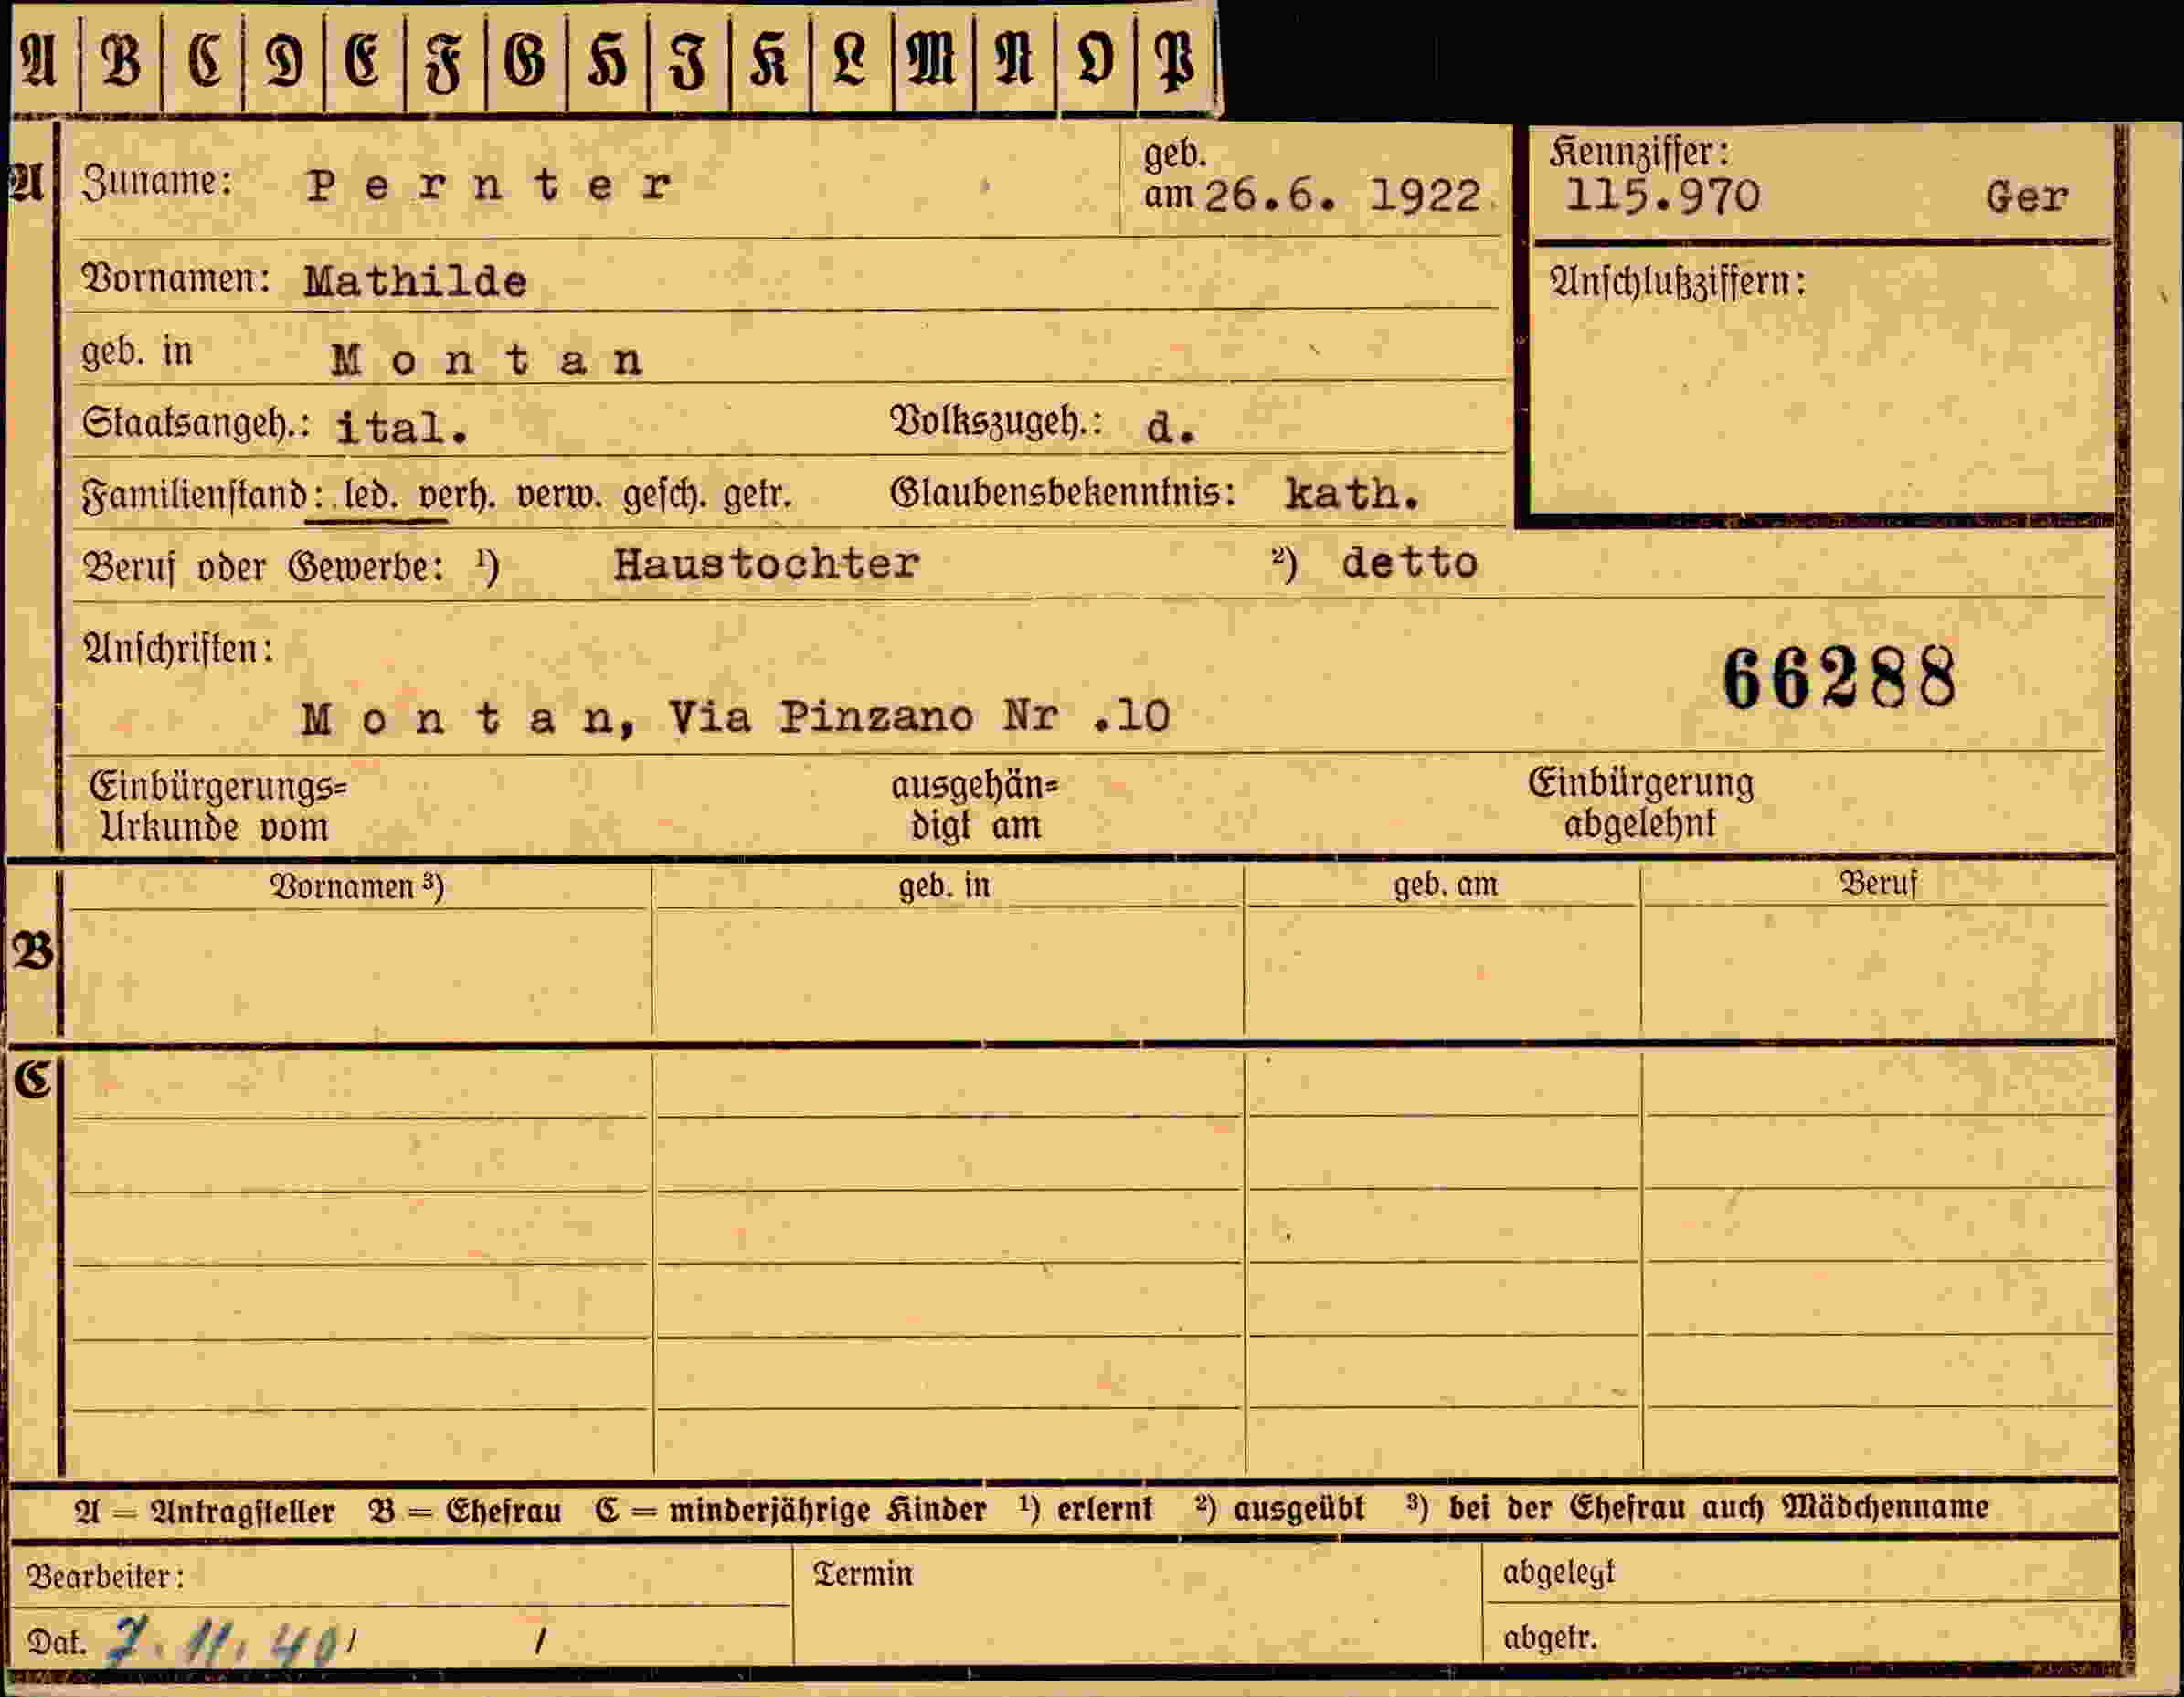 A B C D E F G H I K L M N O P
A Zuname: Pernter geb. am 26.6. 1922
Kennziffer: 115.970 Ger
Vornamen: Mathilde
Anschlußziffern:
geb. in Montan
Staatsangeh.: ital. Volkszugeh.: d.
Familienstand: led. verh. verw. gesch. getr. Glaubensbekenntnis: kath.
Beruf oder Gewerbe: ¹) Haustochter ²) detto
Anschriften:
66288
Montan, Via Pinzano Nr .10
Einbürgerungs= ausgehän= Einbürgerung
Urkunde vom digt am abgelehnt
Vornamen ³) geb. in geb. am Beruf
B
C
A = Antragsteller B = Ehefrau C = minderjährige Kinder ¹) erlernt ²) ausgeübt ³) bei der Ehefrau auch Mädchenname
Bearbeiter: Termin abgelegt
Dat. 7.11.40 / / abgetr.